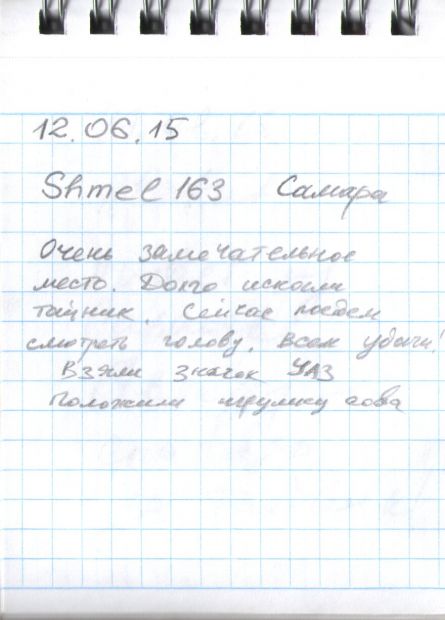 12.06.15
Shmel 163 Самара
Очень замечательное
место. Долго искали
тайник. Сейчас поедем
смотреть голову. Всем удачи!
Взяли значок УАЗ
Положили игрушку сова